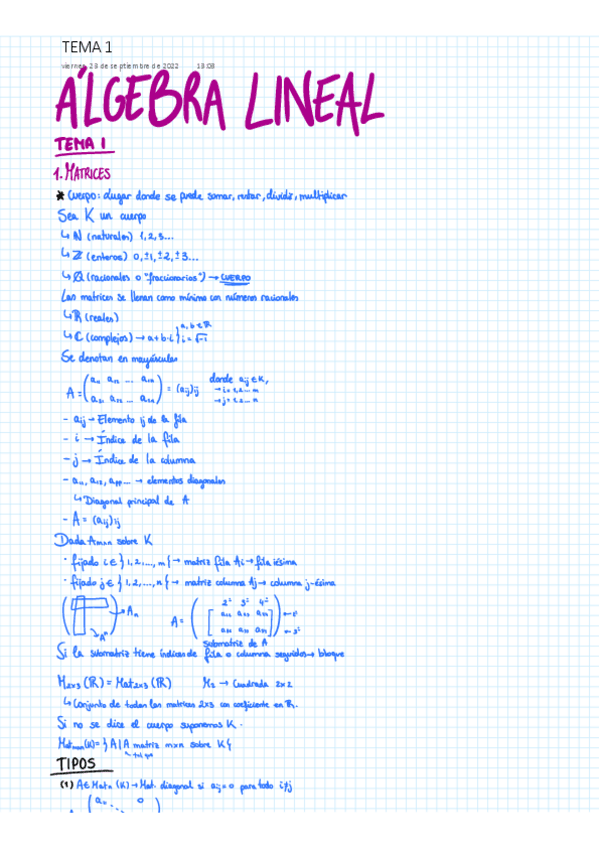 TEMA 1
viernes, 23 de septiembre de 2022 13:03
ÁLGEBRA LINEAL
TEMA 1
1. MATRICES
* Cuerpo: lugar donde se puede sumar, restar, dividir, multiplicar
Sea K un cuerpo
↳ N (naturales) 1, 2, 3...
↳ Z (enteros) 0, ±1, ±2, ±3...
↳ Q (racionales o "fraccionarios") → CUERPO
Las matrices se llenan como mínimo con números racionales
↳ R (reales)
↳ C (complejos) → a+b·i } a, b ∈ R i = √-1
Se denotan en mayúsculas
A = = (aij)ij donde aij ∈ K,
→ i = 1, 2... m
→ j = 1, 2... n
- aij → Elemento ij de la fila
- i → Índice de la fila
- j → Índice de la columna
→ elementos diagonales
↳ Diagonal principal de A
- A = (aij)ij
Dada Amxn sobre K
· fijado i ∈ } 1, 2, ..., m { → matriz fila Ai → fila iésima
· fijado j ∈ } 1, 2, ..., n { → matriz columna Aj → columna j-ésima
A =
submatriz de A
Si la submatriz tiene índices de fila o columna seguidos → bloque
M2x3 (R) = Mat2x3 (R) M2 → Cuadrada 2x2
↳ Conjunto de todas las matrices 2x3 con coeficiente en R.
Si no se dice el cuerpo suponemos K.
Matmxn(K) = } A | A matriz mxn sobre K {
tal que
TIPOS
(1) A ∈ Matn (K) → Mat. diagonal si aij = 0 para todo i≠j